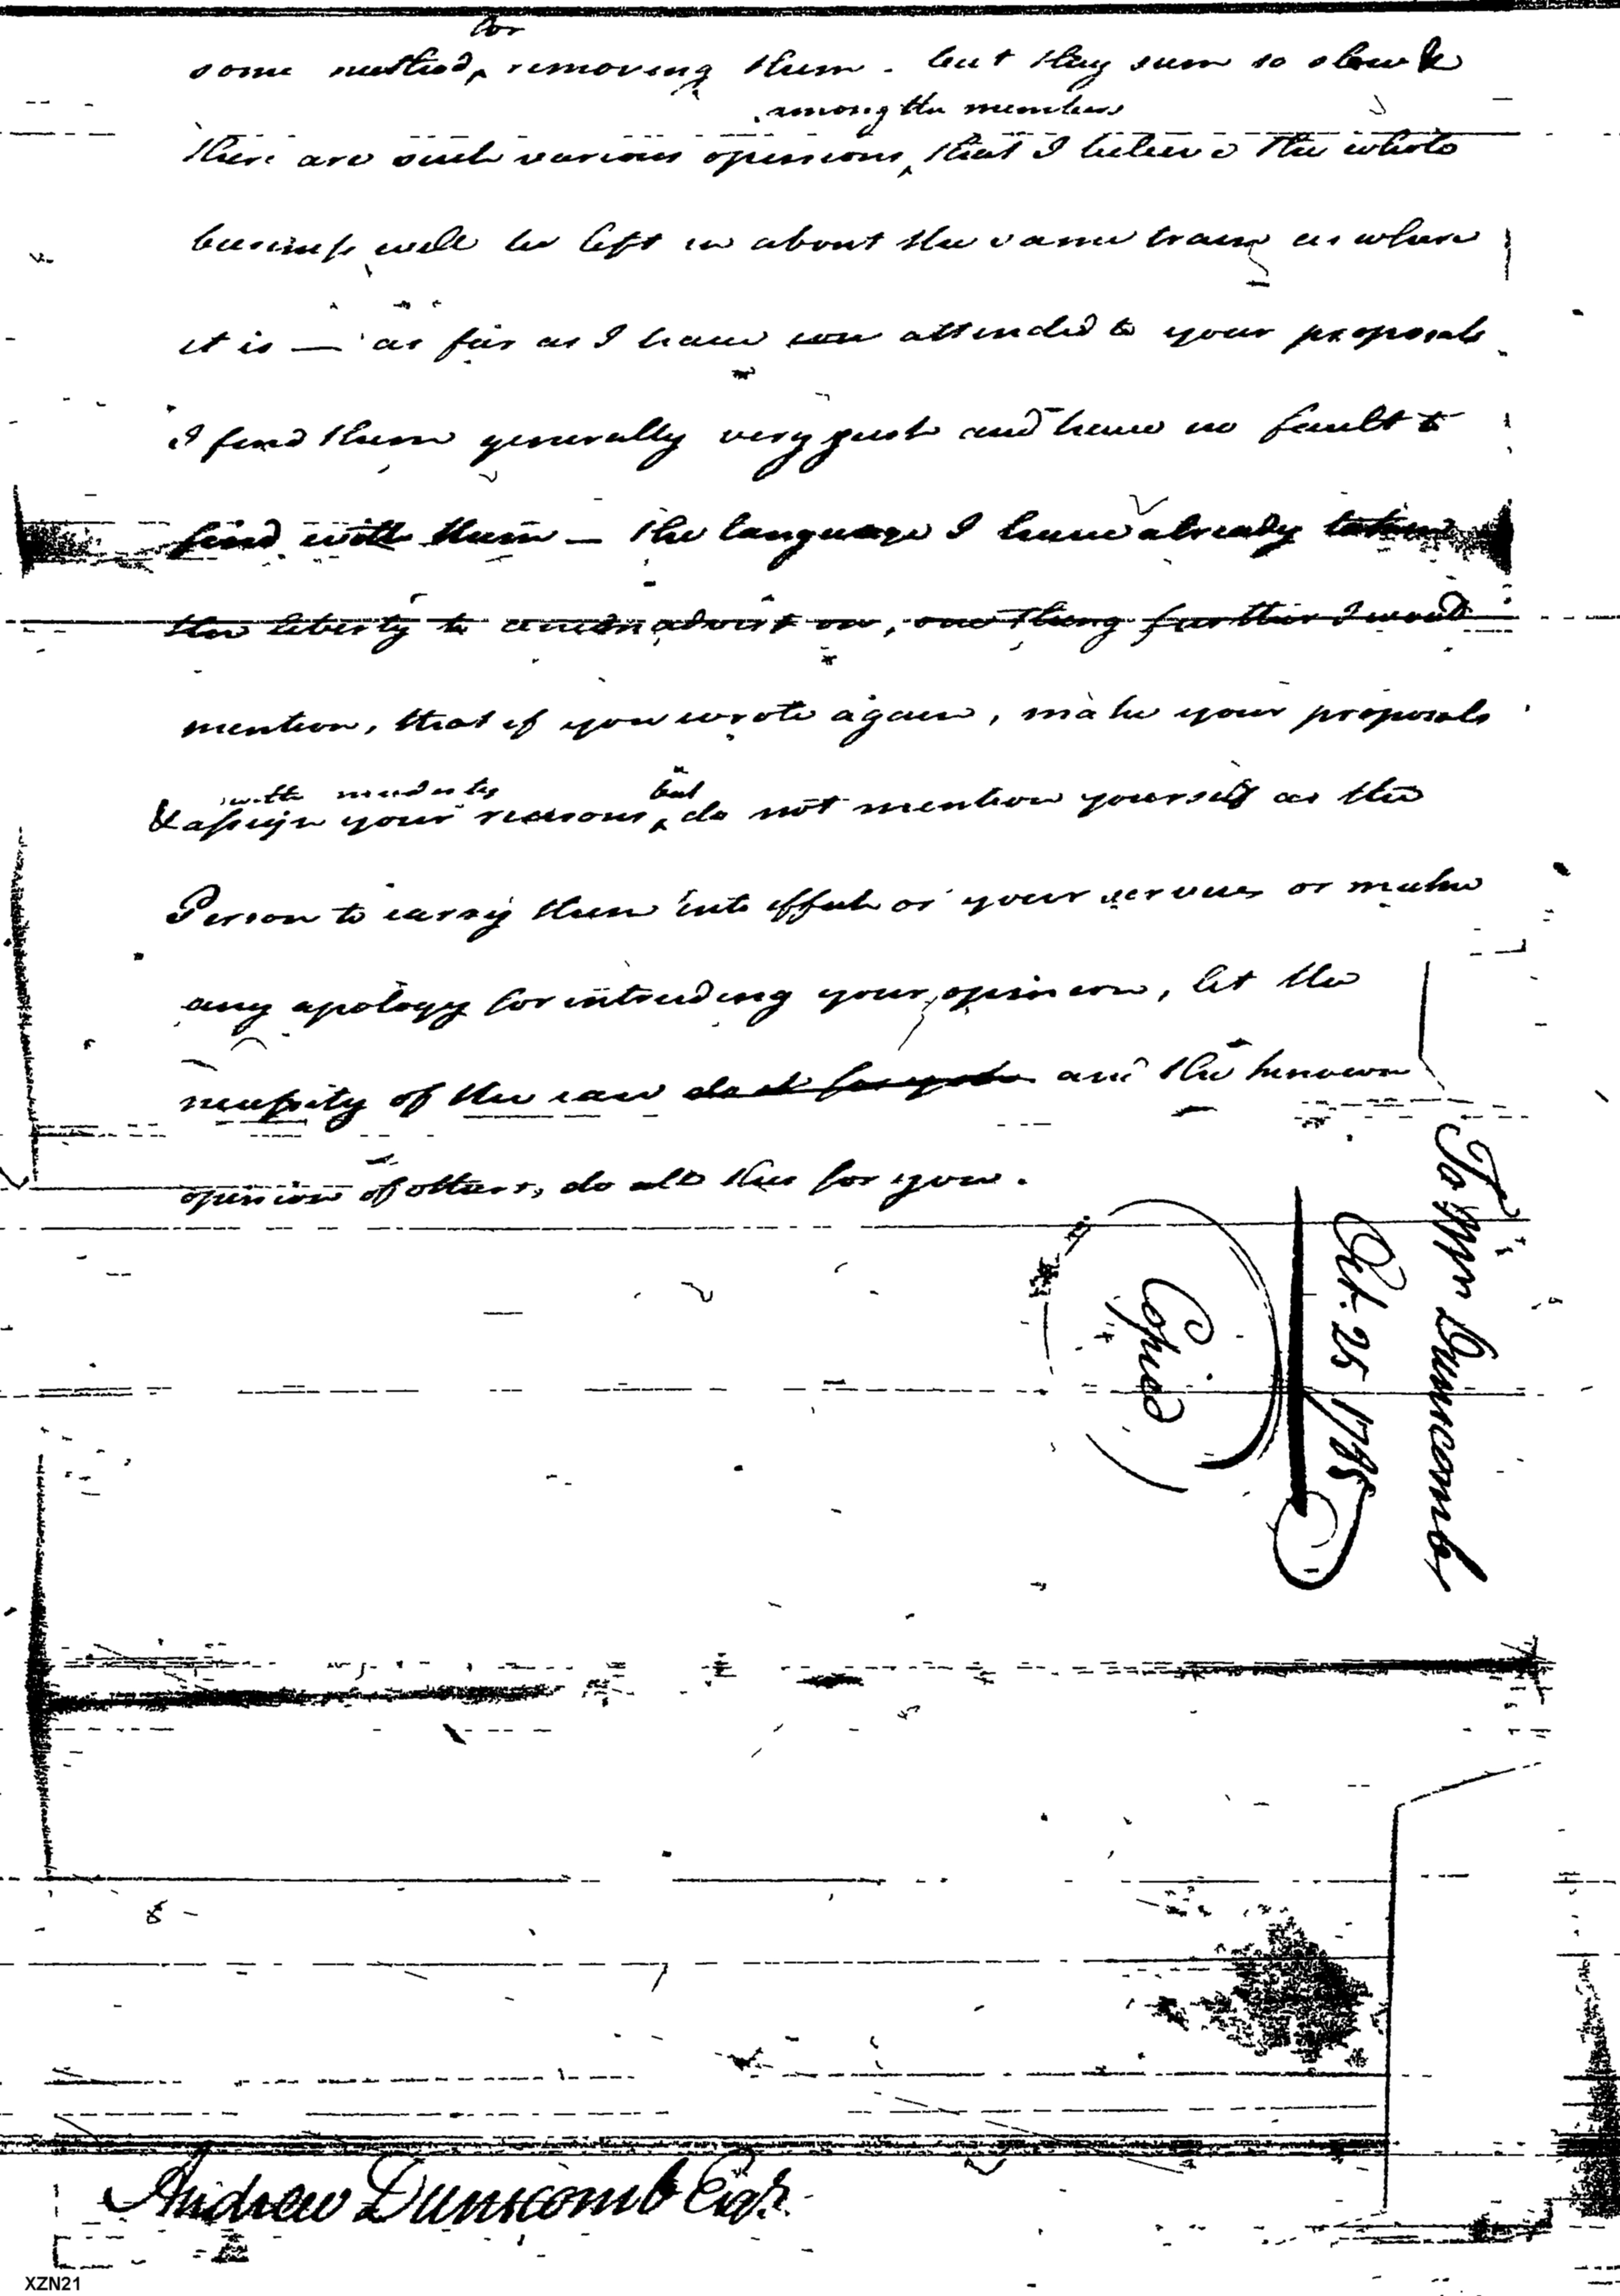 some method ^for removing them. but they seem so slow &
there are such various opinions ^among the members that I believe the whole
business will be left in about the same train as where
it is — as far as I have attended to your proposals
I find them generally very just and have no fault to
find with them — the language I have already taken
the liberty to advert on, one thing further I would
mention, that if you wrote again, make your proposals
& assign ^with modesty your reasons, ^but do not mention yourself as the
Person to carry them into effect or your services or make
any apology for intruding your opinion, let the
necessity of the case and the known
opinion of others, do all this for you.
To Mr Dunscomb
Oct. 25 1785
Copied
Andrew Dunscomb Esqr.
XZN21